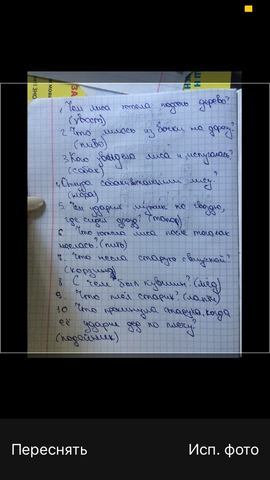 1. Чем лиса хотела подпереть дерево?
(хвост)
2. Что лилось из бочки на дорогу?
(пиво)
3. Кого увидела лиса и испугалась?
(собак)
4. Откуда собаки вытащили лису?
(нора)
5. Чем ударил мужик по гвоздю,
где сидел дрозд? (топор)
6. Что хотела лиса после того как
наелась? (пить)
7. Что несла старуха с внучкой?
(корзина)
8. С чем был кувшин? (мёд)
9. Что плёл старик? (лапти)
10. Что опрокинула старуха, когда
её ударил дед по плечу?
(подойник)
Переснять
Исп. фото